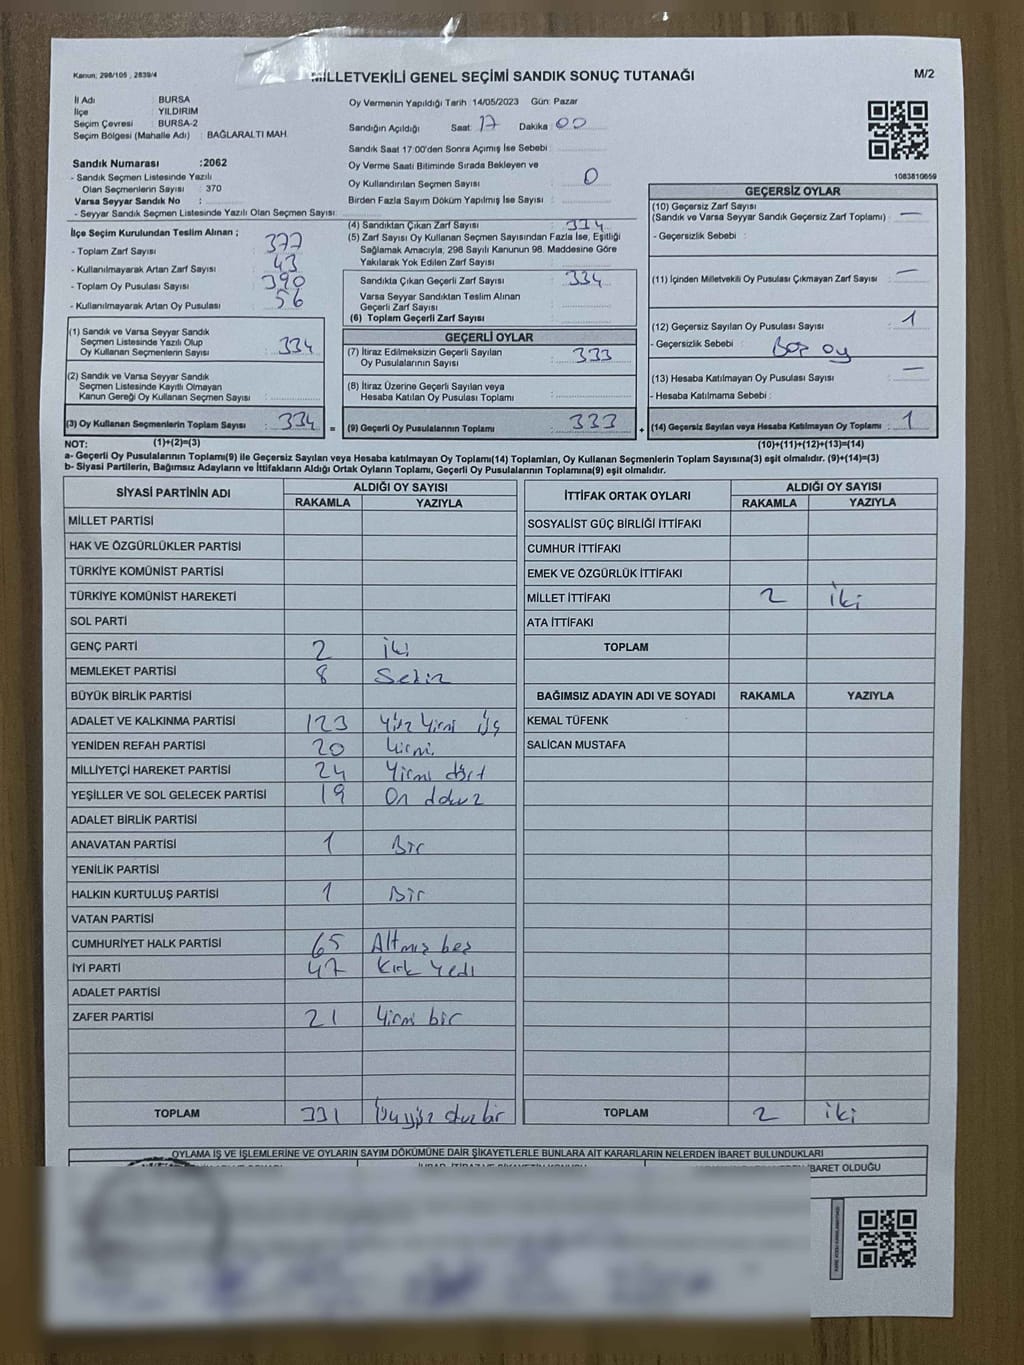 Kanun; 298/105 , 2839/4
MİLLETVEKİLİ GENEL SEÇİMİ SANDIK SONUÇ TUTANAĞI
M/2
İl Adı : BURSA
İlçe : YILDIRIM
Seçim Çevresi : BURSA-2
Seçim Bölgesi (Mahalle Adı) : BAĞLARALTI MAH.
Oy Vermenin Yapıldığı Tarih : 14/05/2023 Gün: Pazar
Sandığın Açıldığı Saat: 17 Dakika : 00
Sandık Saat 17:00'den Sonra Açımış İse Sebebi :
Oy Verme Saati Bitiminde Sırada Bekleyen ve
Oy Kullandırılan Seçmen Sayısı : 0
Birden Fazla Sayım Döküm Yapılmış İse Sayısı :
Sandık Numarası :2062
- Sandık Seçmen Listesinde Yazılı
Olan Seçmenlerin Sayısı : 370
Varsa Seyyar Sandık No :
- Seyyar Sandık Seçmen Listesinde Yazılı Olan Seçmen Sayısı:
İlçe Seçim Kurulundan Teslim Alınan ;
- Toplam Zarf Sayısı : 377
- Kullanılmayarak Artan Zarf Sayısı : 43
- Toplam Oy Pusulası Sayısı : 390
- Kullanılmayarak Artan Oy Pusulası : 56
(1) Sandık ve Varsa Seyyar Sandık
Seçmen Listesinde Yazılı Olup
Oy Kullanan Seçmenlerin Sayısı : 334
(2) Sandık ve Varsa Seyyar Sandık
Seçmen Listesinde Kayıtlı Olmayan
Kanun Gereği Oy Kullanan Seçmen Sayısı :
(3) Oy Kullanan Seçmenlerin Toplam Sayısı : 334 =
(4) Sandıktan Çıkan Zarf Sayısı : 334
(5) Zarf Sayısı Oy Kullanan Seçmen Sayısından Fazla İse, Eşitliği
Sağlamak Amacıyla, 298 Sayılı Kanunun 98. Maddesine Göre
Yakılarak Yok Edilen Zarf Sayısı :
Sandıkta Çıkan Geçerli Zarf Sayısı : 334
Varsa Seyyar Sandıktan Teslim Alınan
Geçerli Zarf Sayısı :
(6) Toplam Geçerli Zarf Sayısı :
GEÇERLİ OYLAR
(7) İtiraz Edilmeksizin Geçerli Sayılan
Oy Pusulalarının Sayısı : 333
(8) İtiraz Üzerine Geçerli Sayılan veya
Hesaba Katılan Oy Pusulası Toplamı :
(9) Geçerli Oy Pusulalarının Toplamı : 333 +
1083810659
GEÇERSİZ OYLAR
(10) Geçersiz Zarf Sayısı
(Sandık ve Varsa Seyyar Sandık Geçersiz Zarf Toplamı) : —
- Geçersizlik Sebebi :
(11) İçinden Milletvekili Oy Pusulası Çıkmayan Zarf Sayısı : —
(12) Geçersiz Sayılan Oy Pusulası Sayısı : 1
- Geçersizlik Sebebi : Boş oy
(13) Hesaba Katılmayan Oy Pusulası Sayısı : —
- Hesaba Katılmama Sebebi :
(14) Geçersiz Sayılan veya Hesaba Katılmayan Oy Toplamı : 1
NOT: (1)+(2)=(3) (10)+(11)+(12)+(13)=(14)
a- Geçerli Oy Pusulalarının Toplamı(9) ile Geçersiz Sayılan veya Hesaba katılmayan Oy Toplamı(14) Toplamları, Oy Kullanan Seçmenlerin Toplam Sayısına(3) eşit olmalıdır. (9)+(14)=(3)
b- Siyasi Partilerin, Bağımsız Adayların ve İttifakların Aldığı Ortak Oyların Toplamı, Geçerli Oy Pusulalarının Toplamına(9) eşit olmalıdır.
SİYASİ PARTİNİN ADI ALDIĞI OY SAYISI
RAKAMLA YAZIYLA
MİLLET PARTİSİ
HAK VE ÖZGÜRLÜKLER PARTİSİ
TÜRKİYE KOMÜNİST PARTİSİ
TÜRKİYE KOMÜNİST HAREKETİ
SOL PARTİ
GENÇ PARTİ 2 iki
MEMLEKET PARTİSİ 8 Sekiz
BÜYÜK BİRLİK PARTİSİ
ADALET VE KALKINMA PARTİSİ 123 Yüz Yirmi Üç
YENİDEN REFAH PARTİSİ 20 Yirmi
MİLLİYETÇİ HAREKET PARTİSİ 24 Yirmi dört
YEŞİLLER VE SOL GELECEK PARTİSİ 19 On dokuz
ADALET BİRLİK PARTİSİ
ANAVATAN PARTİSİ 1 Bir
YENİLİK PARTİSİ
HALKIN KURTULUŞ PARTİSİ 1 Bir
VATAN PARTİSİ
CUMHURİYET HALK PARTİSİ 65 Altmış beş
İYİ PARTİ 47 Kırk Yedi
ADALET PARTİSİ
ZAFER PARTİSİ 21 Yirmi bir
TOPLAM 331 üçyüz otuz bir
İTTİFAK ORTAK OYLARI ALDIĞI OY SAYISI
RAKAMLA YAZIYLA
SOSYALİST GÜÇ BİRLİĞİ İTTİFAKI
CUMHUR İTTİFAKI
EMEK VE ÖZGÜRLÜK İTTİFAKI
MİLLET İTTİFAKI 2 iki
ATA İTTİFAKI
TOPLAM
BAĞIMSIZ ADAYIN ADI VE SOYADI RAKAMLA YAZIYLA
KEMAL TÜFENK
SALİCAN MUSTAFA
TOPLAM 2 iki
OYLAMA İŞ VE İŞLEMLERİNE VE OYLARIN SAYIM DÖKÜMÜNE DAİR ŞİKAYETLERLE BUNLARA AİT KARARLARIN NELERDEN İBARET BULUNDUKLARI
İBARET OLDUĞU